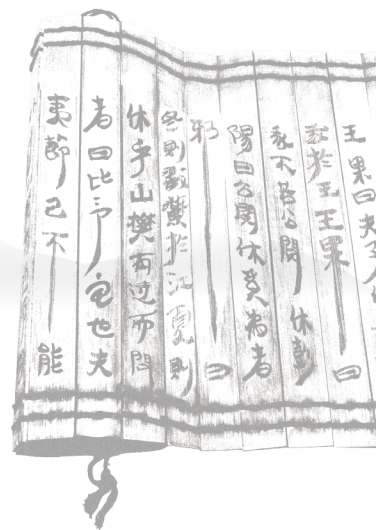 王果曰夫子
我於王王果曰
我不若公閱休彭
陽曰公閱休奚為者
邪曰
冬則擉鱉於江夏則
休乎山樊有过而問
者曰此予宅也夫
夷節已不能